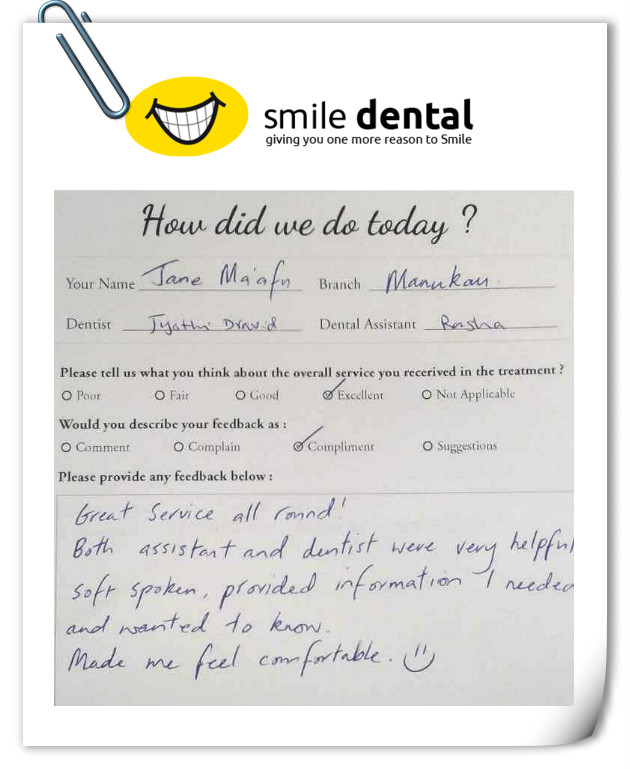 smile dental
giving you one more reason to Smile
How did we do today ?
Your Name Jane Ma'afu Branch Manukau.
Dentist Jyothi Dravid Dental Assistant Rasha
Please tell us what you think about the overall service you recerived in the treatment ?
Poor Fair Good Excellent Not Applicable
Would you describe your feedback as :
Comment Complain Compliment Suggestions
Please provide any feedback below :
Great Service all round!
Both assistant and dentist were very helpful
soft spoken, provided information I needed
and wanted to know.
Made me feel comfortable.